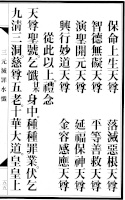 保命上生天尊　落滅惡根天尊
智德無礙天尊　平等善救天尊
演聖開元天尊　延福保神天尊
興行妙道天尊　金容感應天尊
從此以上禮念
天尊聖號乞懺某身中種種罪業伏乞
九清三洞慈尊五老十華大道皇皇上
三元滅罪水懺